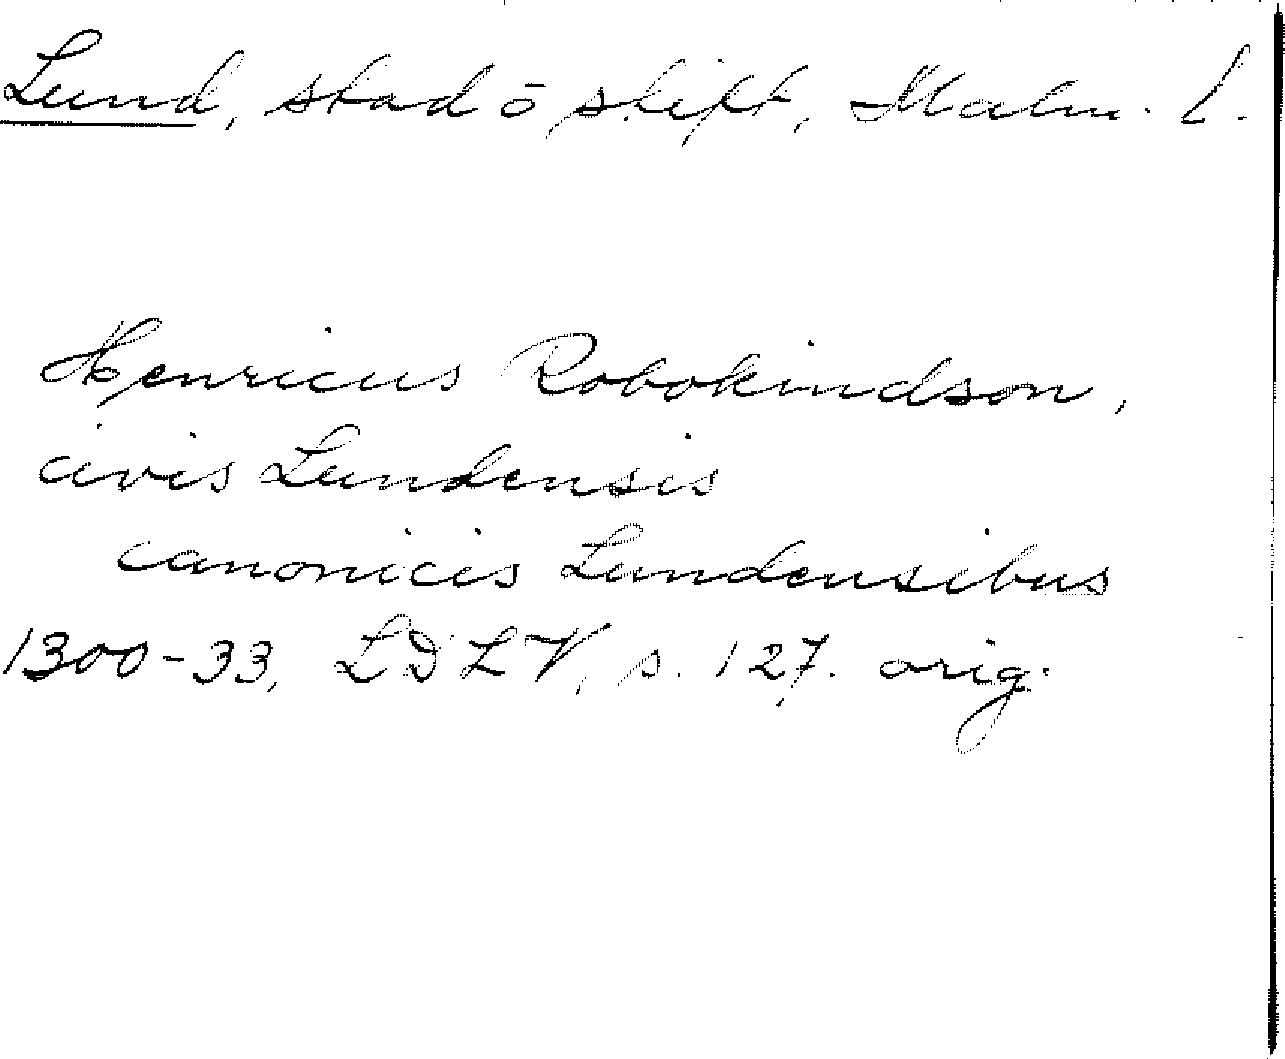 Lund, stad o stift, Malm. l.
Henricus Robokindson,
civis Lundensis
canonicis Lundensibus
1300-33, LDLV, s. 127. orig.